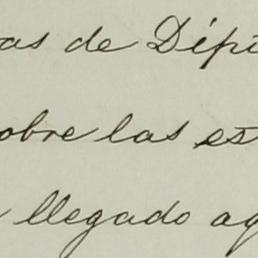 as de Dipu
obre las es
llegado aq